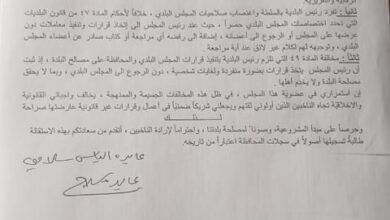 ثانياً : تفرد رئيس البلدية بالسلطة واغتصاب صلاحيات المجلس البلدي، خلافاً لأحكام المادة ٤٧ من قانون البلديات
التي تحدد اختصاصات المجلس البلدي حصراً، حيث عمد رئيس المجلس الى اتخاذ قرارات وتنفيذ معاملات دون
عرضها على المجلس أو الرجوع الى أعضائه، إضافة الى رفضه أي مراجعة أو كتاب صادر عن أعضاء المجلس
البلدي، وتوجيهه لهم لكلام غير لائق عند أية مراجعة.
ثالثاً : مخالفة المادة ٤٩ التي تلزم رئيس البلدية بتنفيذ قرارات المجلس البلدي والمحافظة على مصالح البلدية، إذ ثبت
أن رئيس المجلس يتخذ قرارات بصورة منفردة ولغايات شخصية، دون الرجوع الى المجلس، وبما لا يحقق
مصلحة البلدة ولا يخدم أهلها.
إن استمراري في عضوية هذا المجلس، في ظل هذه المخالفات الجسيمة والممنهجة، يخالف واجباتي القانونية
والاخلاقية تجاه الناخبين الذين أولوني ثقتهم ويجعلني شريكاً ضمنياً في أعمال وقرارات غير قانونية عارضتها صراحة
لذلك
وحرصاً على مبدأ المشروعية، وصوناً لمصلحة بلدتنا، واحتراماً لإرادة الناخبين، أتقدم من سعادتكم بهذه الاستقالة
طالبة تسجيلها أصولاً في سجلات المحافظة اعتباراً من تاريخه.
عايده
عايده